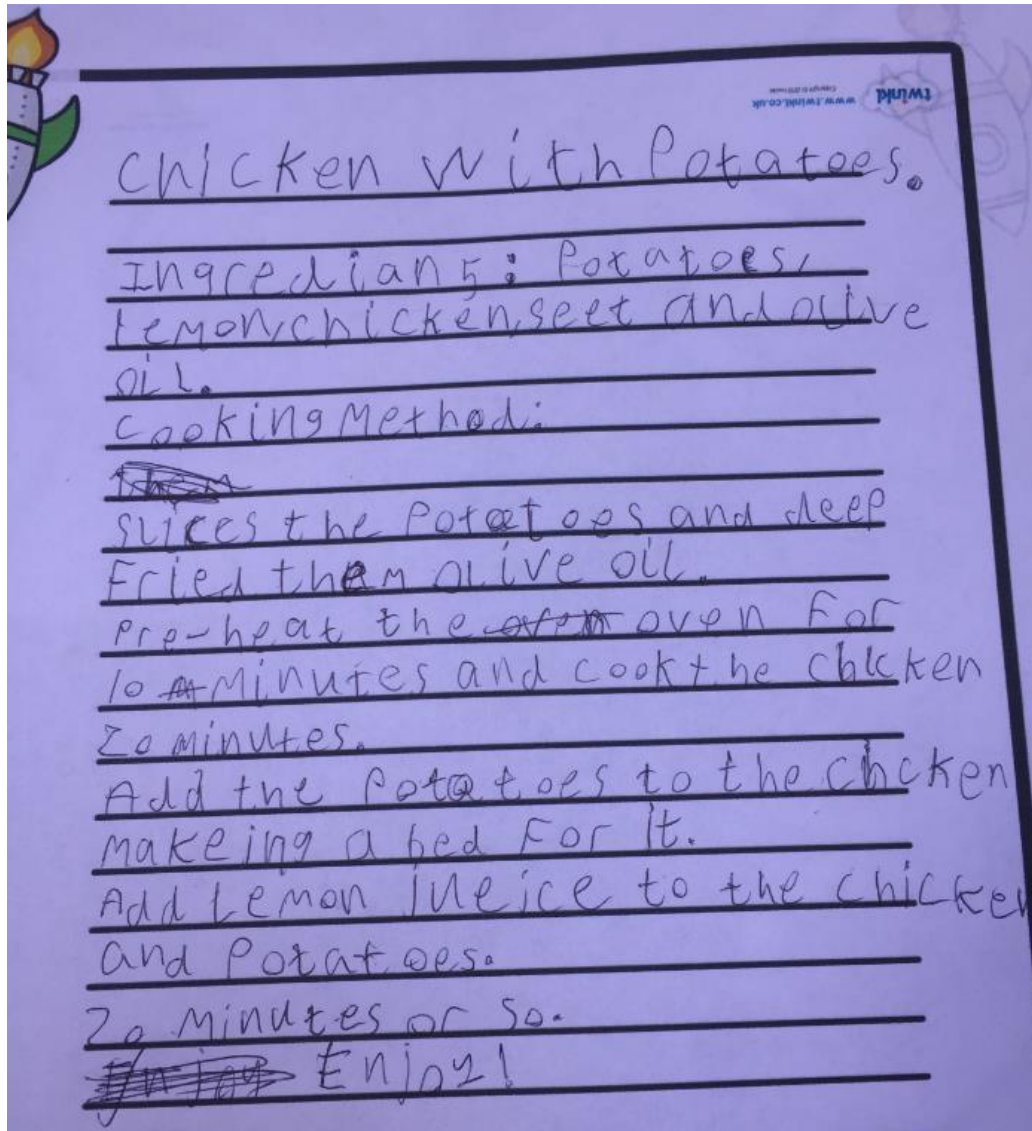 twinkl www.twinkl.co.uk
Chicken with Potatoes.
Ingredians: Potatoes,
Lemon, chicken, seet and olive
oil.
Cooking Method:
slices the Potatoes and deep
Fried them olive oil.
Pre-heat the oven For
10 minutes and cook the chicken
20 minutes.
Add the Potatoes to the chcken
makeing a bed For it.
Add Lemon jueice to the chicken
and Potatoes.
20 Minutes or so.
Enjoy!